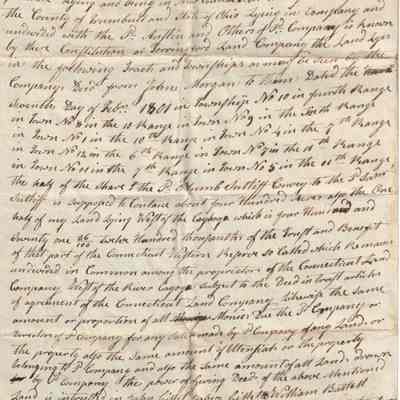 lying and being in
the County of Trumbull and State of Ohio Lying in Company and
undivided with the Sd. Austin and Others of Sd. Company is known
by these Constitution or Torringford Land Company the Land Lyes
in the following Tracts and Townships as may be seen by the
Companys Deed from John Morgan to them Dated the
Seventh Day of Febr. 1801 in Townships No 10 in fourth Range
in Town No 8 in the 10 Range in Town No 9 in the Sixth Range
in Town No 1 in 10th Range in Town No 4 in the 9th Range
in Town No 12 in the 6th Range in Town No 7 in the 11th Range
in Town No in the 7th Range in Town No 5 in the 11th Range
the half of the Share I the Sd. Plumb Sutliff Convey to the Sd. Sam
Sutliff is Supposed to Contain about four Hundred Acres also the One
half of my Land Lying West of the Cayhoga which is four Hundred and
twenty one Twelve Hundred thousandths of the Trust and Benefit
of that part of the Connecticut Western Reserve So Called which Remains
undivided in Common among the proprietors of the Connecticut Land
Company West of the River Cagoga Subject to the Deed in trust articles
of agreement of the Connecticut Land Company likewise the Same
amount or proportion of all Monies Due the Sd. Company or
Directors of Sd. Company for any Sale made by Sd. Company of any Land, or
the property also the Same amount of all on the property
belonging to Sd. Company and also the Same amount of all Land, drawn
by Sd. Company & the power of Giving Deed of the above Mentioned
Land is William Battell